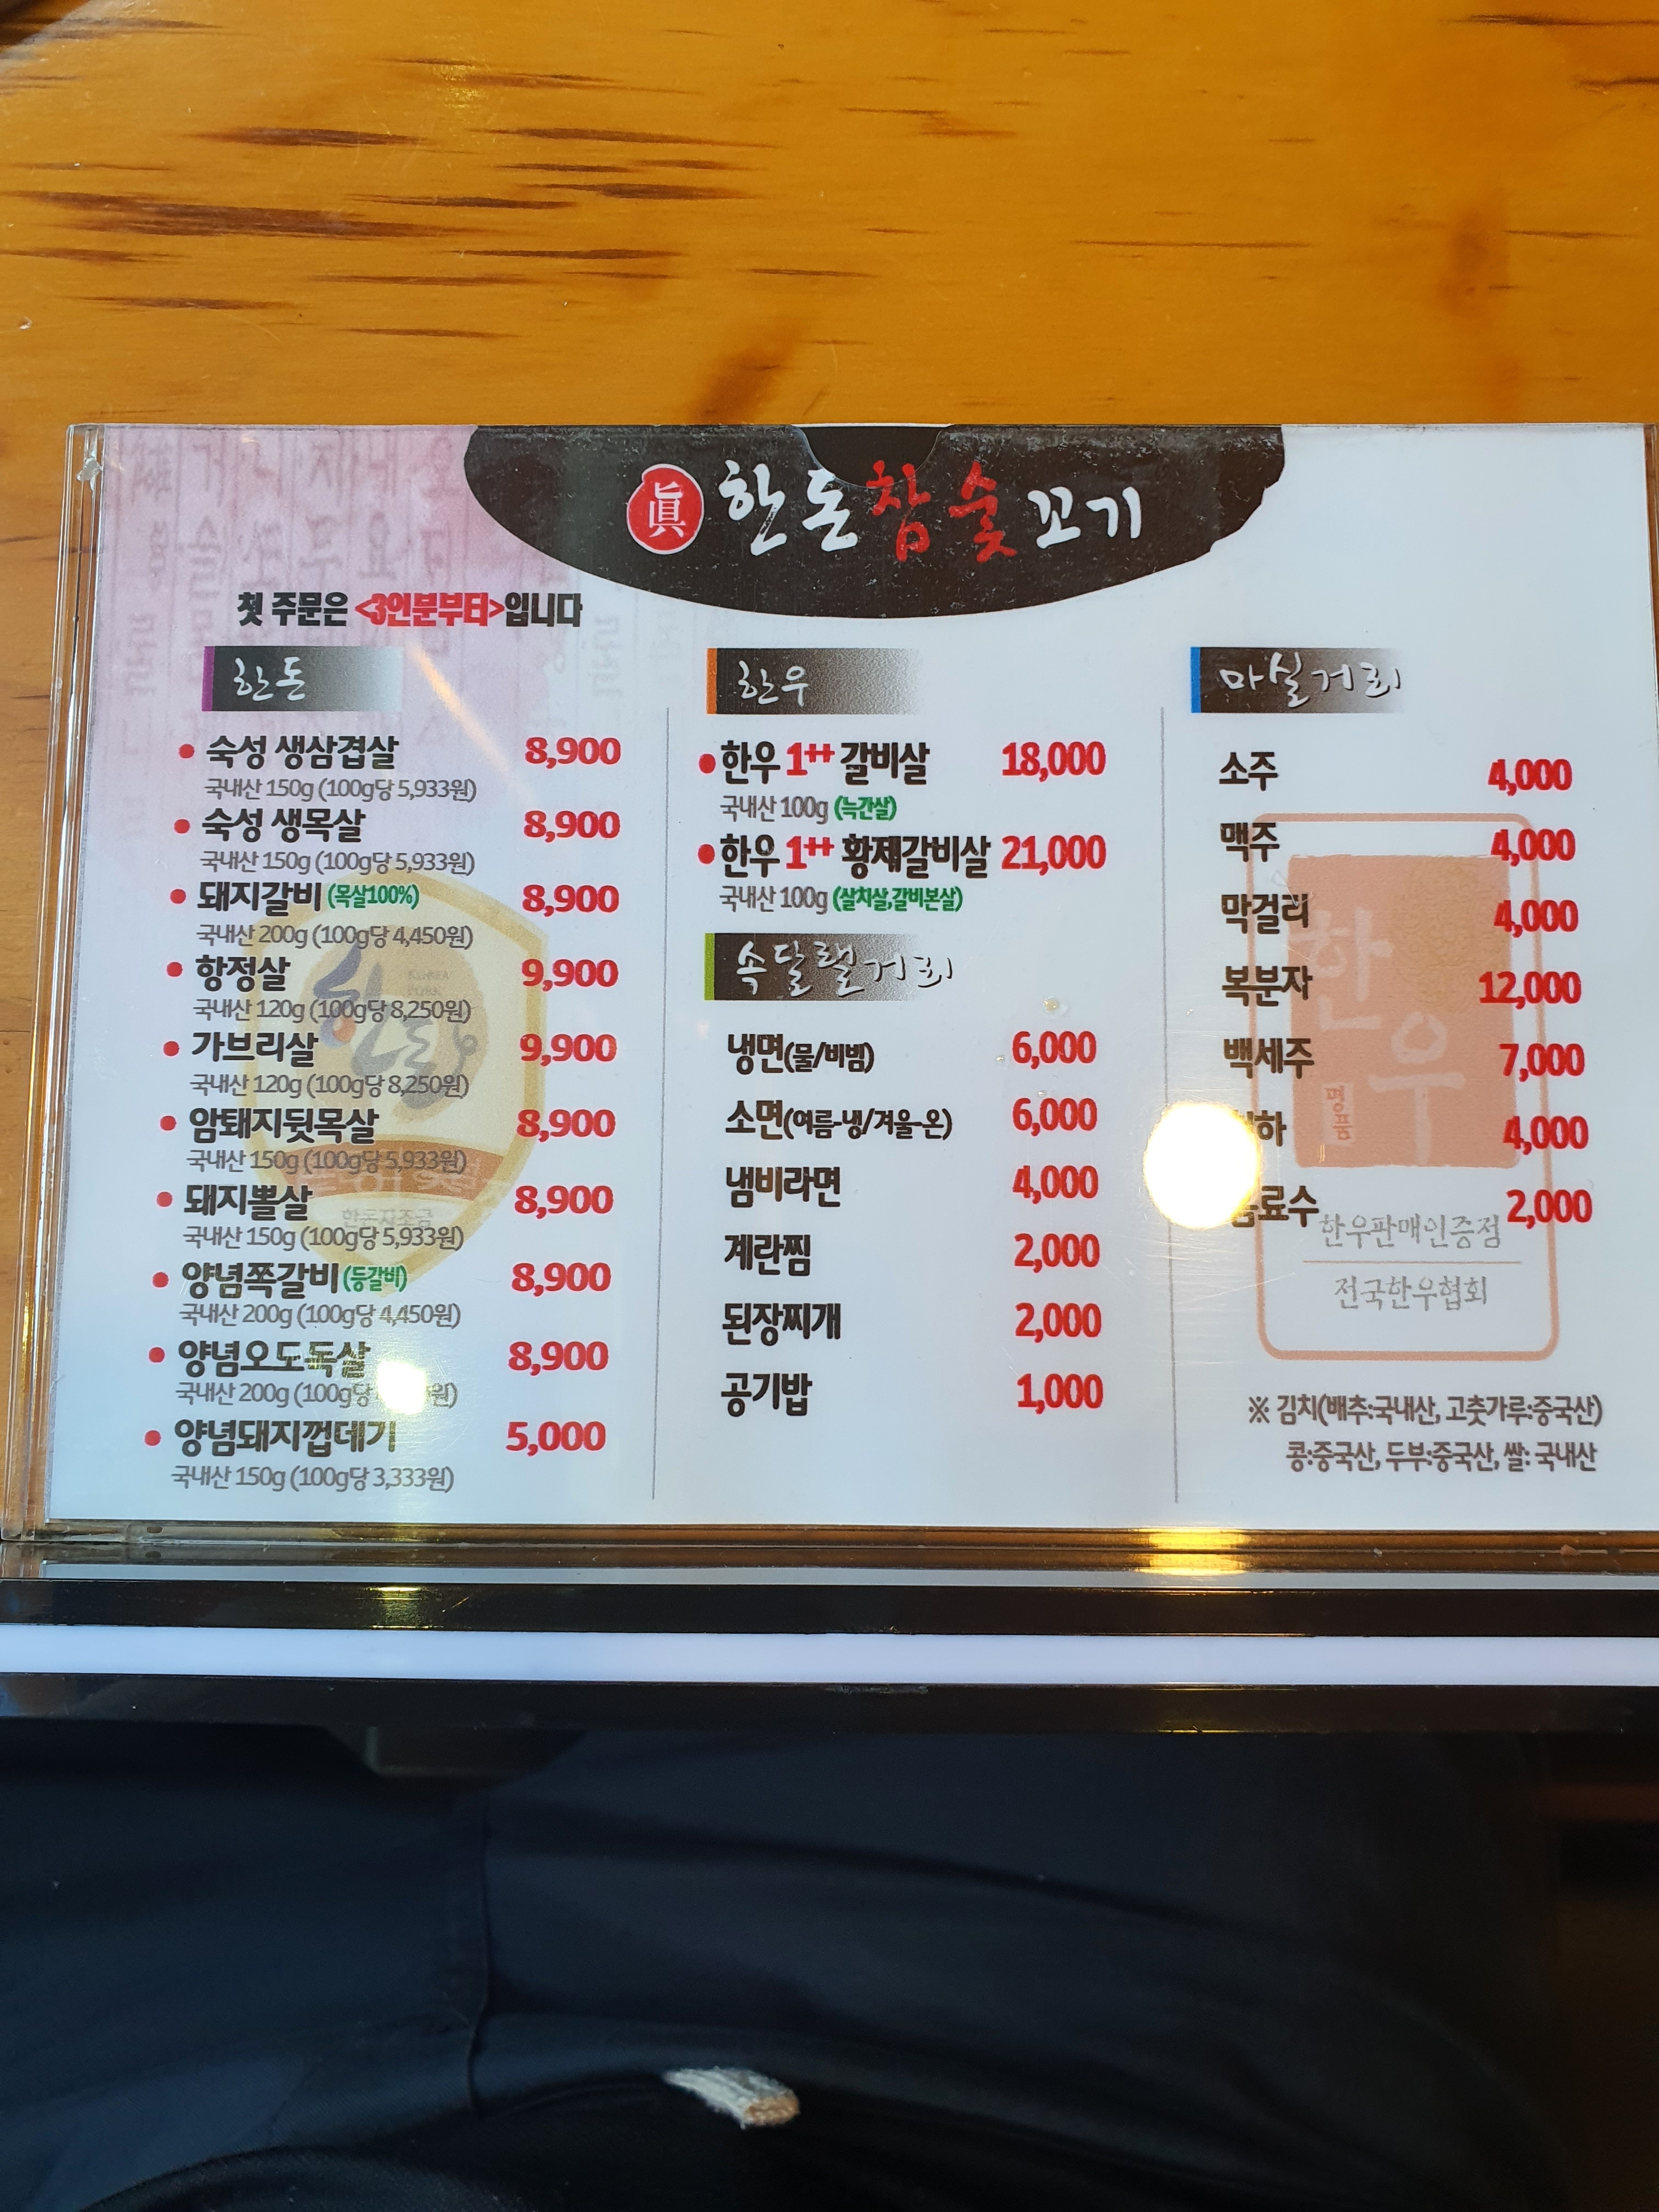 眞 한돈참숯꼬기
첫 주문은 <3인분부터>입니다
한돈
숙성 생삼겹살 8,900
국내산 150g (100g당 5,933원)
숙성 생목살 8,900
국내산 150g (100g당 5,933원)
돼지갈비 (목살100%) 8,900
국내산 200g (100g당 4,450원)
항정살 9,900
국내산 120g (100g당 8,250원)
가브리살 9,900
국내산 120g (100g당 8,250원)
암퇘지뒷목살 8,900
국내산 150g (100g당 5,933원)
돼지뽈살 8,900
국내산 150g (100g당 5,933원)
양념쪽갈비 (등갈비) 8,900
국내산 200g (100g당 4,450원)
양념오도독살 8,900
국내산 200g (100g당 원)
양념돼지껍데기 5,000
국내산 150g (100g당 3,333원)
한우
한우 1++ 갈비살 18,000
국내산 100g (늑간살)
한우 1++ 황제갈비살 21,000
국내산 100g (살치살,갈비본살)
속달랠거리
냉면(물/비빔) 6,000
소면(여름-냉/겨울-온) 6,000
냄비라면 4,000
계란찜 2,000
된장찌개 2,000
공기밥 1,000
마실거리
소주 4,000
맥주 4,000
막걸리 4,000
복분자 12,000
백세주 7,000
하 4,000
료수 2,000
한우
명품
한우판매인증점
전국한우협회
※ 김치(배추:국내산, 고춧가루:중국산)
콩:중국산, 두부:중국산, 쌀: 국내산